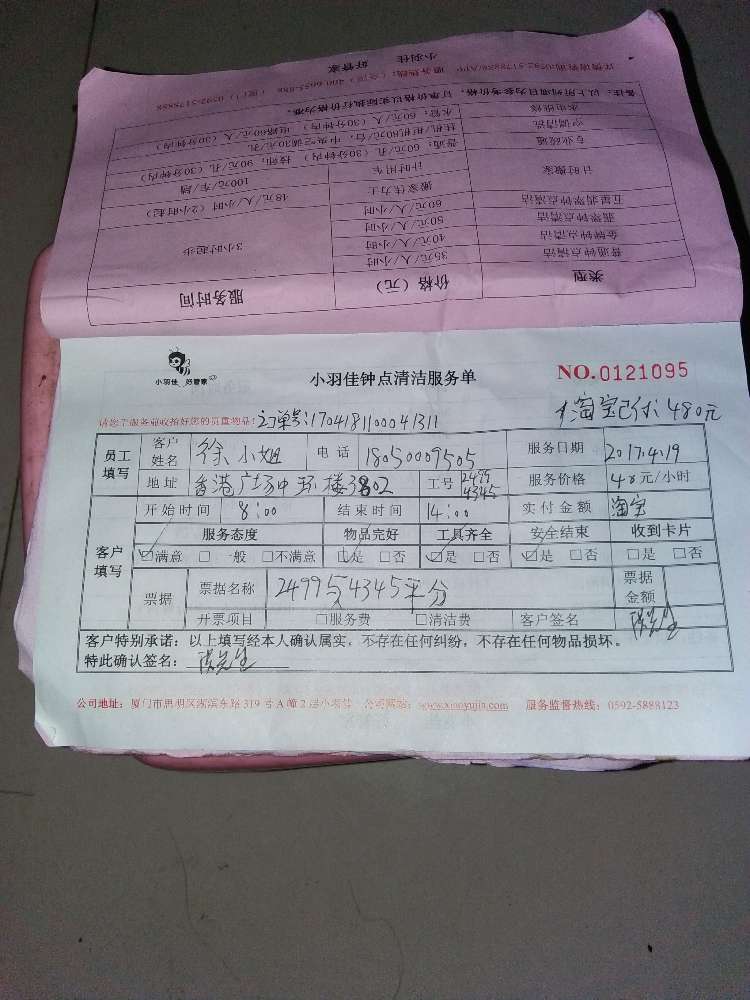 小羽佳 好管家
小羽佳钟点清洁服务单
NO.0121095
请您于服务前收拾好您的贵重物品!
订单号:1704181100041311
淘宝已付:480元
员工填写 客户姓名 徐小姐 电话 18050007505 服务日期 2017.4.19
地址 香港广场中环楼3802 工号 2499 4345 服务价格 40元/小时
开始时间 8:00 结束时间 14:00 实付金额 淘宝
客户填写 服务态度 物品完好 工具齐全 安全结束 收到卡片
☑满意 □一般 □不满意 ☑是 □否 ☑是 □否 ☑是 □否 □是 □否
票据 票据名称 2499与4345平分 票据金额
开票项目 □服务费 □清洁费 客户签名 陈先生
客户特别承诺:以上填写经本人确认属实,不存在任何纠纷,不存在任何物品损坏。
特此确认签名: 陈先生
公司地址:厦门市思明区湖滨东路319号A幢2层小羽佳 公司网站:www.xiaoyujia.com 服务监督热线:0592-5888123
类型 价格(元) 服务时间
普通钟点清洁 35元/人/小时 3小时起步
金牌钟点清洁 40元/人/小时
翡翠钟点清洁 50元/小时
五星翡翠钟点清洁 60元/小时
计时搬家 搬家佳力士 48元/人/小时(2小时起)
计时用车 100元/车/趟
专业疏通 普通:60元/孔(30分钟内) 技师:90元/孔(30分钟内)
空调清洗 挂机/柜机80元/台,中央空调30元/孔
水电维修 水管:60元/人(30分钟内) 电路60元/人(30分钟内)
备注:以上列项目为参考价格,订单价格以实际执行价格为准。
小羽佳 好管家